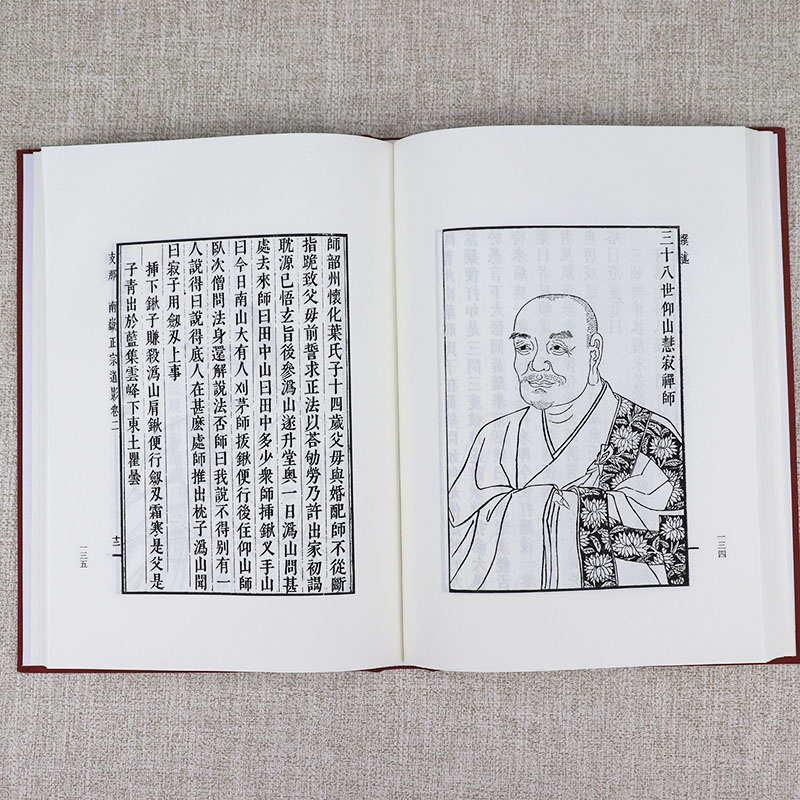 撰述
三十八世仰山慧寂禪師
一三四
師韶州懷化葉氏子十四歲父母與婚配師不從斷
指跪致父母前誓求正法以荅劬勞乃許出家初謁
耽源已悟玄旨後參溈山遂升堂奧一日溈山問甚
處去來師曰田中山曰田中多少衆師揷鍬叉手山
曰今日南山大有人刈茅師拔鍬便行後住仰山師
臥次僧問法身還解說法否師曰我說不得别有一
人說得曰說得底人在甚麽處師推出枕子溈山聞
曰寂子用劔刄上事
揷下鍬子賺殺溈山肩鍬便行劔刄霜寒是父是
子青出於藍集雲峰下東土瞿曇
支那 南嶽正宗道影卷二 十二
一三五